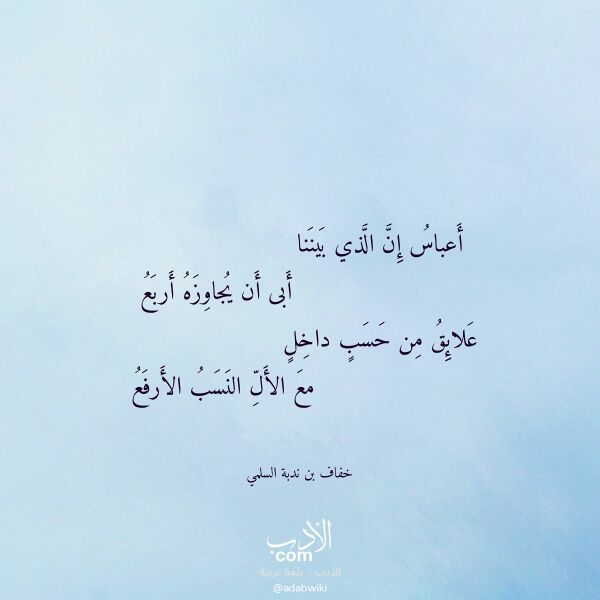 أَعباسُ إِنَّ الَّذي بَينَنا
أَبى أَن يُجاوِزَهُ أَربَعُ
عَلائِقُ مِن حَسَبٍ داخِلٍ
معَ الأَلِّ النَسَبُ الأَرفَعُ
خفاف بن ندبة السلمي
الأدب
com
الأدب .. بلغة عربية
@adabwiki